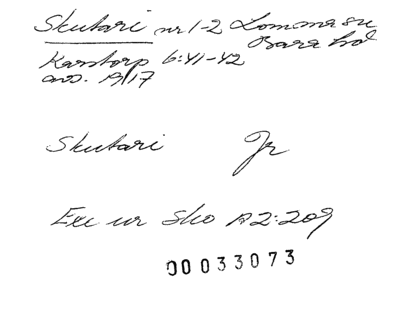 Skutari nr 1-2 Lomma sn
Bara hd
Karstorp 6:41-42
avs. 1917
Skutari Jr
Exc ur Sko A2:209
00033073